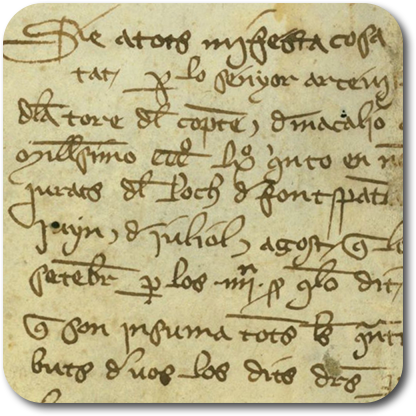 Sie atots manifesta cosa
tat p lo senyor arcem
dla tore dl copte, dmacalio
Millesimo ccc lxº qnto en n
jurats dl loch d fontspat
juyn, d juliol, agost, q l
setebr p los iiii p qlo dit
q son insuma tots ls qnt
buts d uos los dits drs